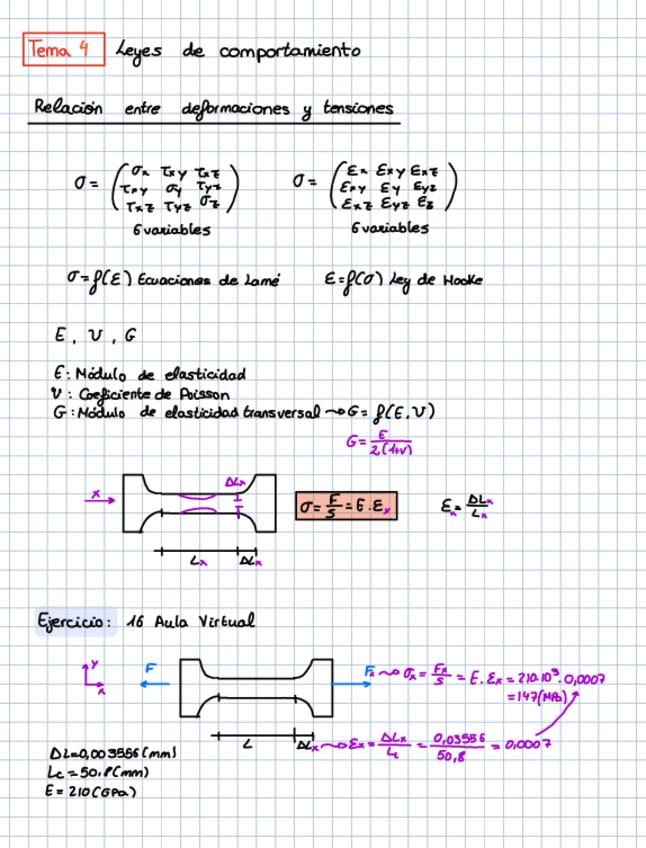 Tema 4 Leyes de comportamiento
Relación entre deformaciones y tensiones
σ = (σx τxy τxz      σ = (εx εxy εxz
τxy σy τyz      εxy εy εyz
τxz τyz σz)      εxz εyz εz)
6 variables      6 variables
σ=f(ε) Ecuaciones de Lamé      ε=f(σ) Ley de Hooke
E, ν, G
E: Módulo de elasticidad
ν: Coeficiente de Poisson
G: Módulo de elasticidad transversal ⇝ G = f(E,ν)
G = E/2(1+ν)
x      ΔLx      σ = F/S = E.εx      εx = ΔLx/Lx
Lx      ΔLx
Ejercicio: 16 Aula Virtual
y x      F      Fx ⇝ σx = Fx/S = E.εx = 210·10³·0,0007
=147(MPa)
L      ΔLx ⇝ εx = ΔLx/L = 0,03556/50,8 = 0,0007
ΔL=0,003556(mm)
Lc=50,8(mm)
E=210(GPa)